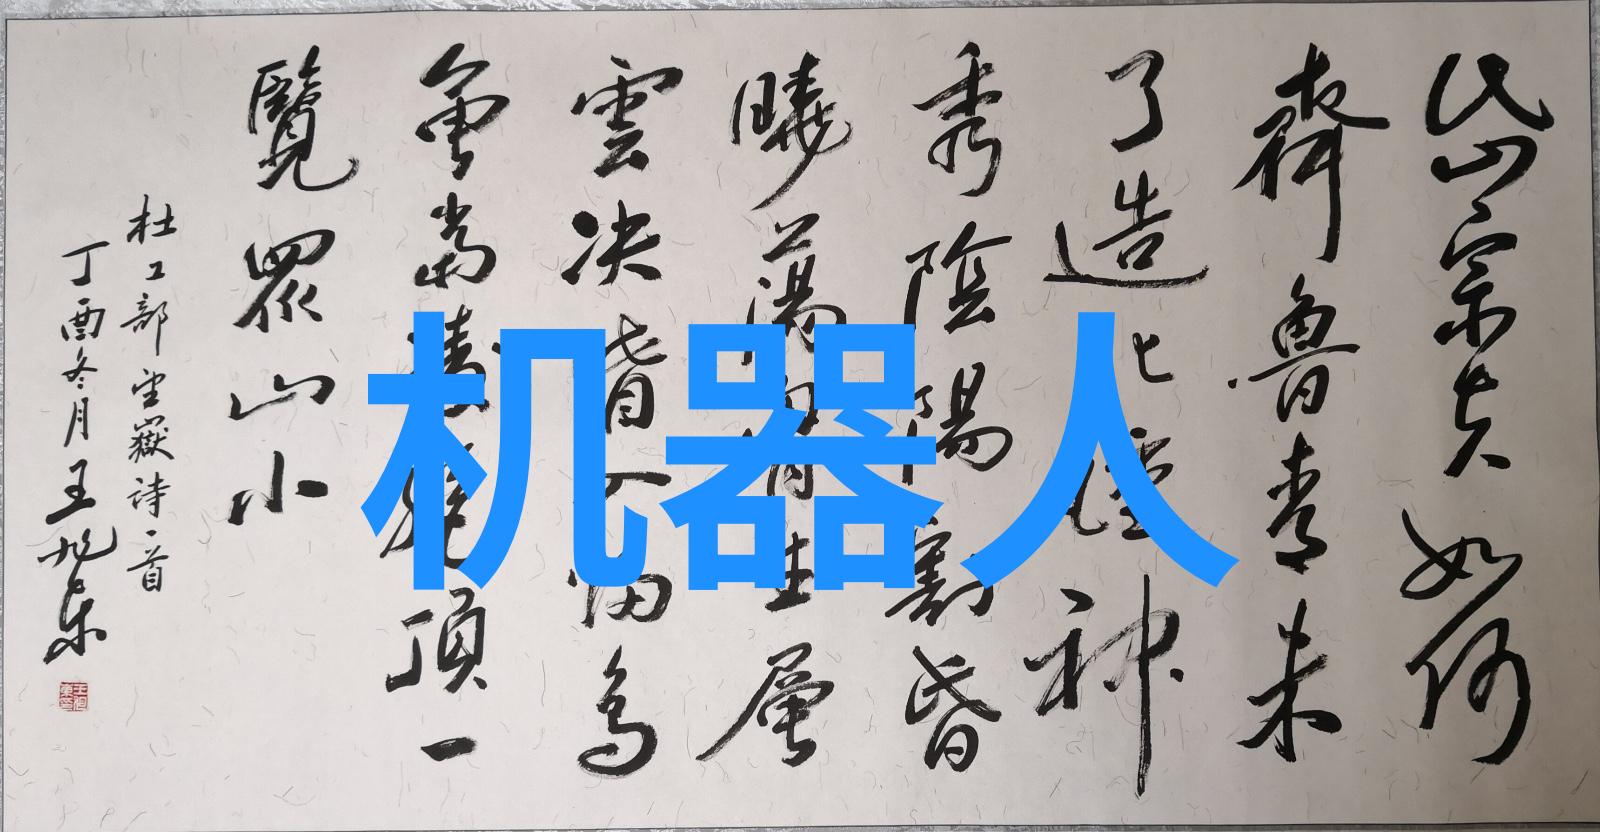 岱宗夫如何
齊魯青未
了造化鍾神
秀陰陽割昏
曉蕩胸生層
雲决眥入歸鳥
會當凌絕頂一
覽眾山小
杜工部望嶽詩一首
丁酉冬月王旭东
机器人